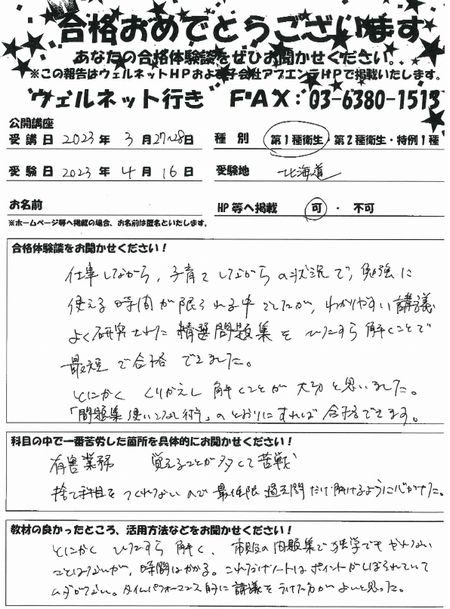 合格おめでとうございます
あなたの合格体験談をぜひお聞かせください。
※この報告はウェルネットHPおよび子会社アフエンタHPで掲載いたします。
ウェルネット行き FAX:03-6380-1513
公開講座
受講日 2023年3月27~28日 種別 第1種衛生・第2種衛生・特例1種
受験日 2023年4月16日 受験地 北海道
お名前 HP等へ掲載 可・不可
※ホームページ等へ掲載の場合、お名前は匿名といたします。
合格体験談をお聞かせください!
仕事しながら、子育てしながらの状況で、勉強に
使える時間が限られる中でしたが、わかりやすい講義
よく研究された精選問題集をひたすら解くことで
最短で合格できました。
とにかくくりかえし解くことが大切と思いました。
「問題集使いたおし術」のとおりにすれば合格できます。
科目の中で一番苦労した箇所を具体的にお聞かせください!
有害業務 覚えることが多くて苦戦
捨て科目をつくれないので最低限過去問だけ解けるように心がけた。
教材の良かったところ、活用方法などをお聞かせください!
とにかくひたすら解く、市販の問題集で独学でもやれない
ことはないが、時間はかかる。これだけノートはポイントがしぼられていて
ムダがない。タイムパフォーマンス的に講義をうけた方がよいと思った。